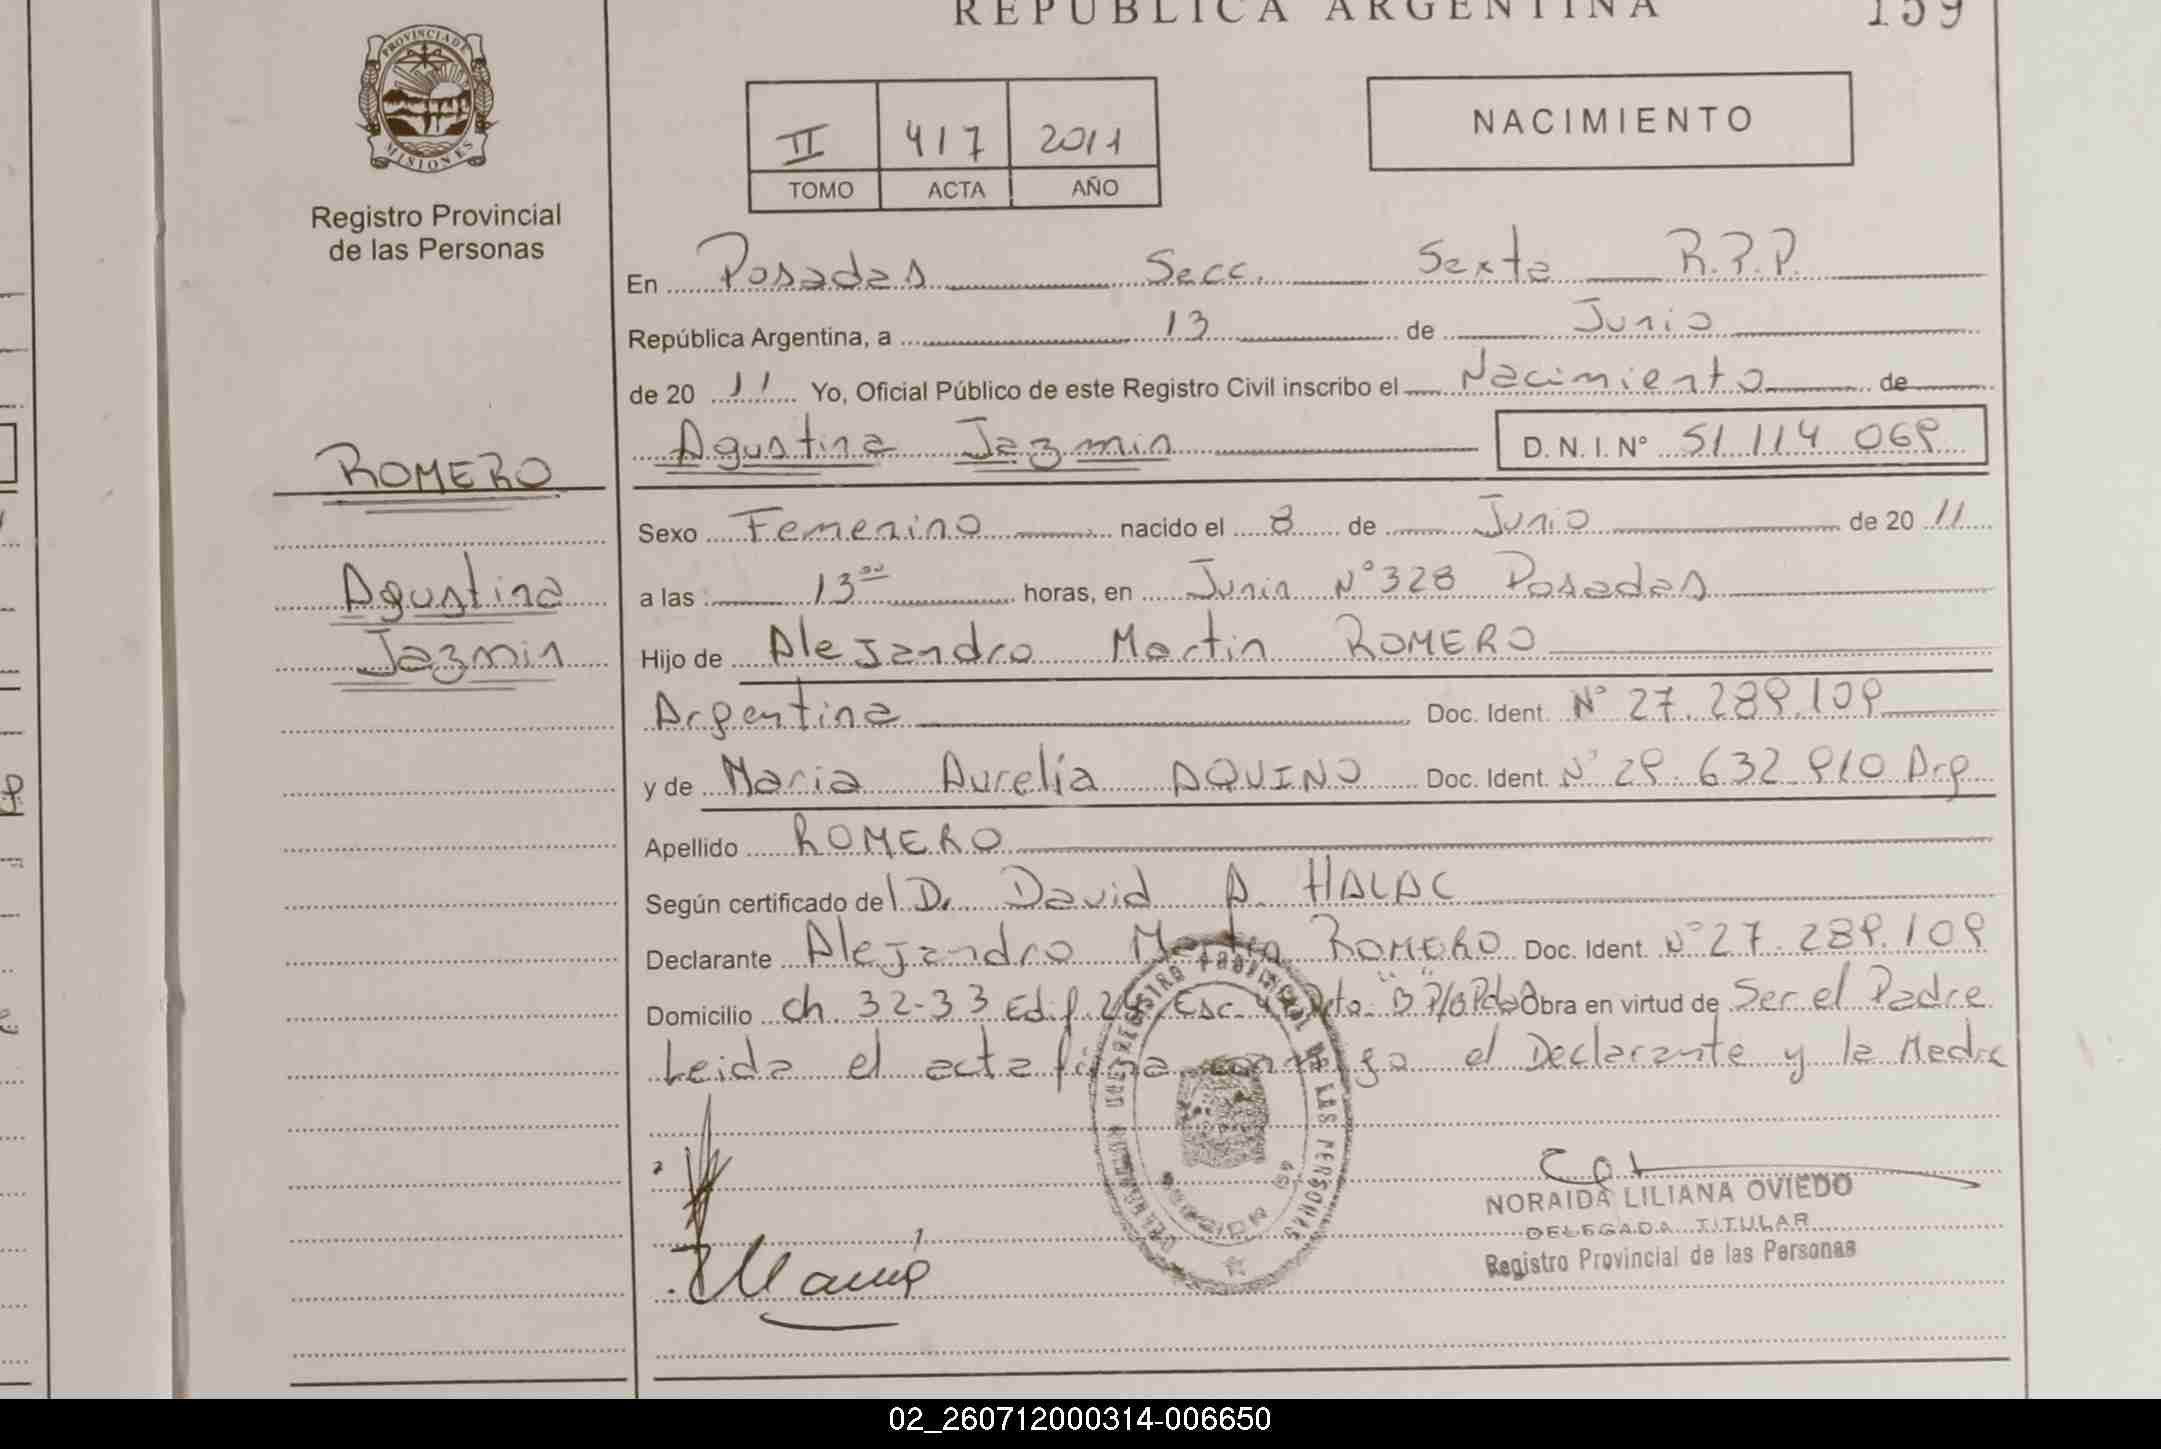 REPÚBLICA ARGENTINA
159
PROVINCIA DE
MISIONES
Registro Provincial
de las Personas
II 417 2011
TOMO ACTA AÑO
NACIMIENTO
En Posadas Secc. Sexta R.P.P.
República Argentina, a 13 de Junio
de 20 11 Yo, Oficial Público de este Registro Civil inscribo el Nacimiento de
Agustina Jazmin D. N. I. N° 51 114 069
ROMERO
Agustina
Jazmin
Sexo Femenino nacido el 8 de Junio de 20 11
a las 13 00 horas, en Junin N° 328 Posadas
Hijo de Alejandro Martin ROMERO
Argentina Doc. Ident. N° 27.289.109
y de Maria Aurelia AQUINO Doc. Ident. N° 29.632.910 Arg
Apellido ROMERO
Según certificado del D. David A. HALAC
Declarante Alejandro Martin ROMERO Doc. Ident. N° 27.289.109
Domicilio ch 32-33 Edif. Esc. "B" Obra en virtud de Ser el Padre
Leida el acta firma conmigo el Declarante y la Madre
REGISTRO PROVINCIAL DE LAS PERSONAS
NORAIDA LILIANA OVIEDO
DELEGADA TITULAR
Registro Provincial de las Personas
02_260712000314-006650